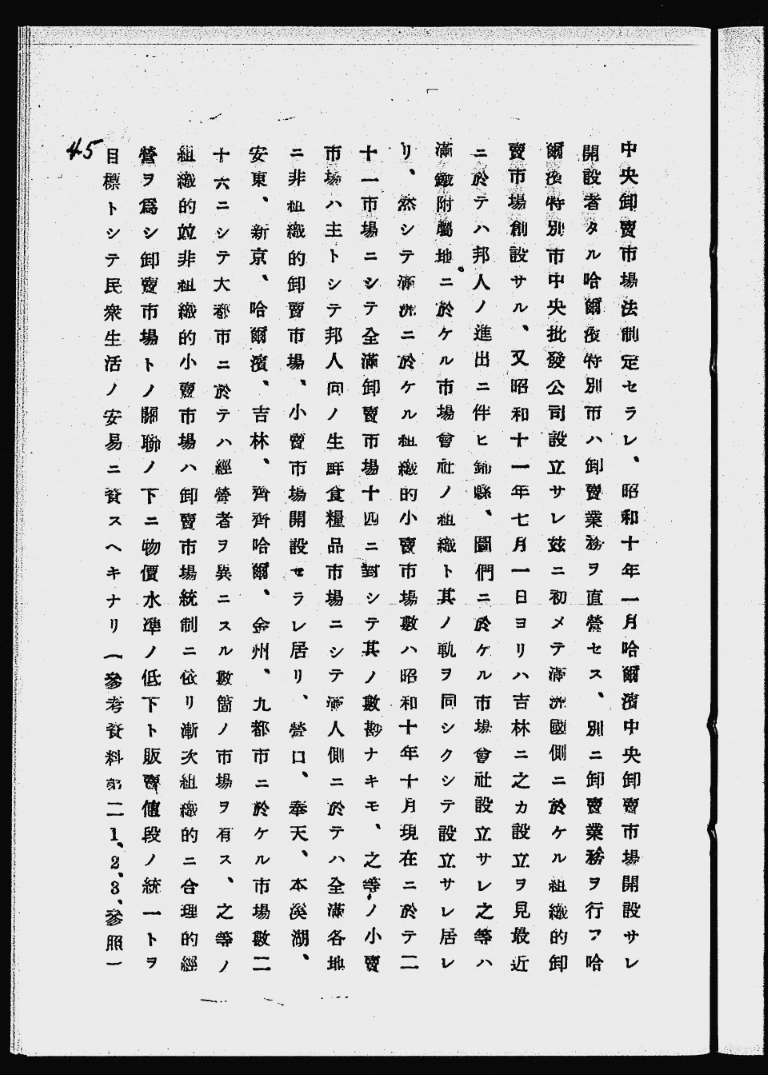 中央卸賣市場法制定セラレ、昭和十年一月哈爾濱中央卸賣市場開設サレ
開設者タル哈爾濱特別市ハ卸賣業務ヲ直營セス、別ニ卸賣業務ヲ行フ哈
爾濱特別市中央批發公司設立サレ玆ニ初メテ滿洲國側ニ於ケル組織的卸
賣市場創設サル、又昭和十一年七月一日ヨリハ吉林ニ之カ設立ヲ見最近
ニ於テハ邦人ノ進出ニ伴ヒ錦縣、圖們ニ於ケル市場會社設立サレ之等ハ
滿鐵附屬地ニ於ケル市場會社ノ組織ト其ノ軌ヲ同シクシテ設立サレ居レ
リ、然シテ滿洲ニ於ケル組織的小賣市場數ハ昭和十年十月現在ニ於テ二
十一市場ニシテ全滿卸賣市場十四ニ對シテ其ノ數尠ナキモ、之等ノ小賣
市場ハ主トシテ邦人向ノ生鮮食糧品市場ニシテ滿人側ニ於テハ全滿各地
ニ非組織的卸賣市場、小賣市場開設セラレ居リ、營口、奉天、本溪湖、
安東、新京、哈爾濱、吉林、齊齊哈爾、金州、九都市ニ於ケル市場數二
十六ニシテ大都市ニ於テハ經營者ヲ異ニスル數箇ノ市場ヲ有ス、之等ノ
組織的竝非組織的小賣市場ハ卸賣市場統制ニ依リ漸次組織的ニ合理的經
營ヲ爲シ卸賣市場トノ關聯ノ下ニ物價水準ノ低下ト販賣値段ノ統一トヲ
目標トシテ民衆生活ノ安易ニ資スヘキナリ（參考資料第二1、2、3、參照）
45